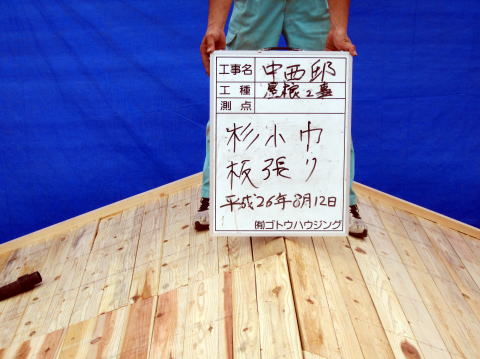 工事名 中西邸
工種 屋根工事
測点
杉小巾
板張り
平成26年8月12日
㈲ゴトウハウジング